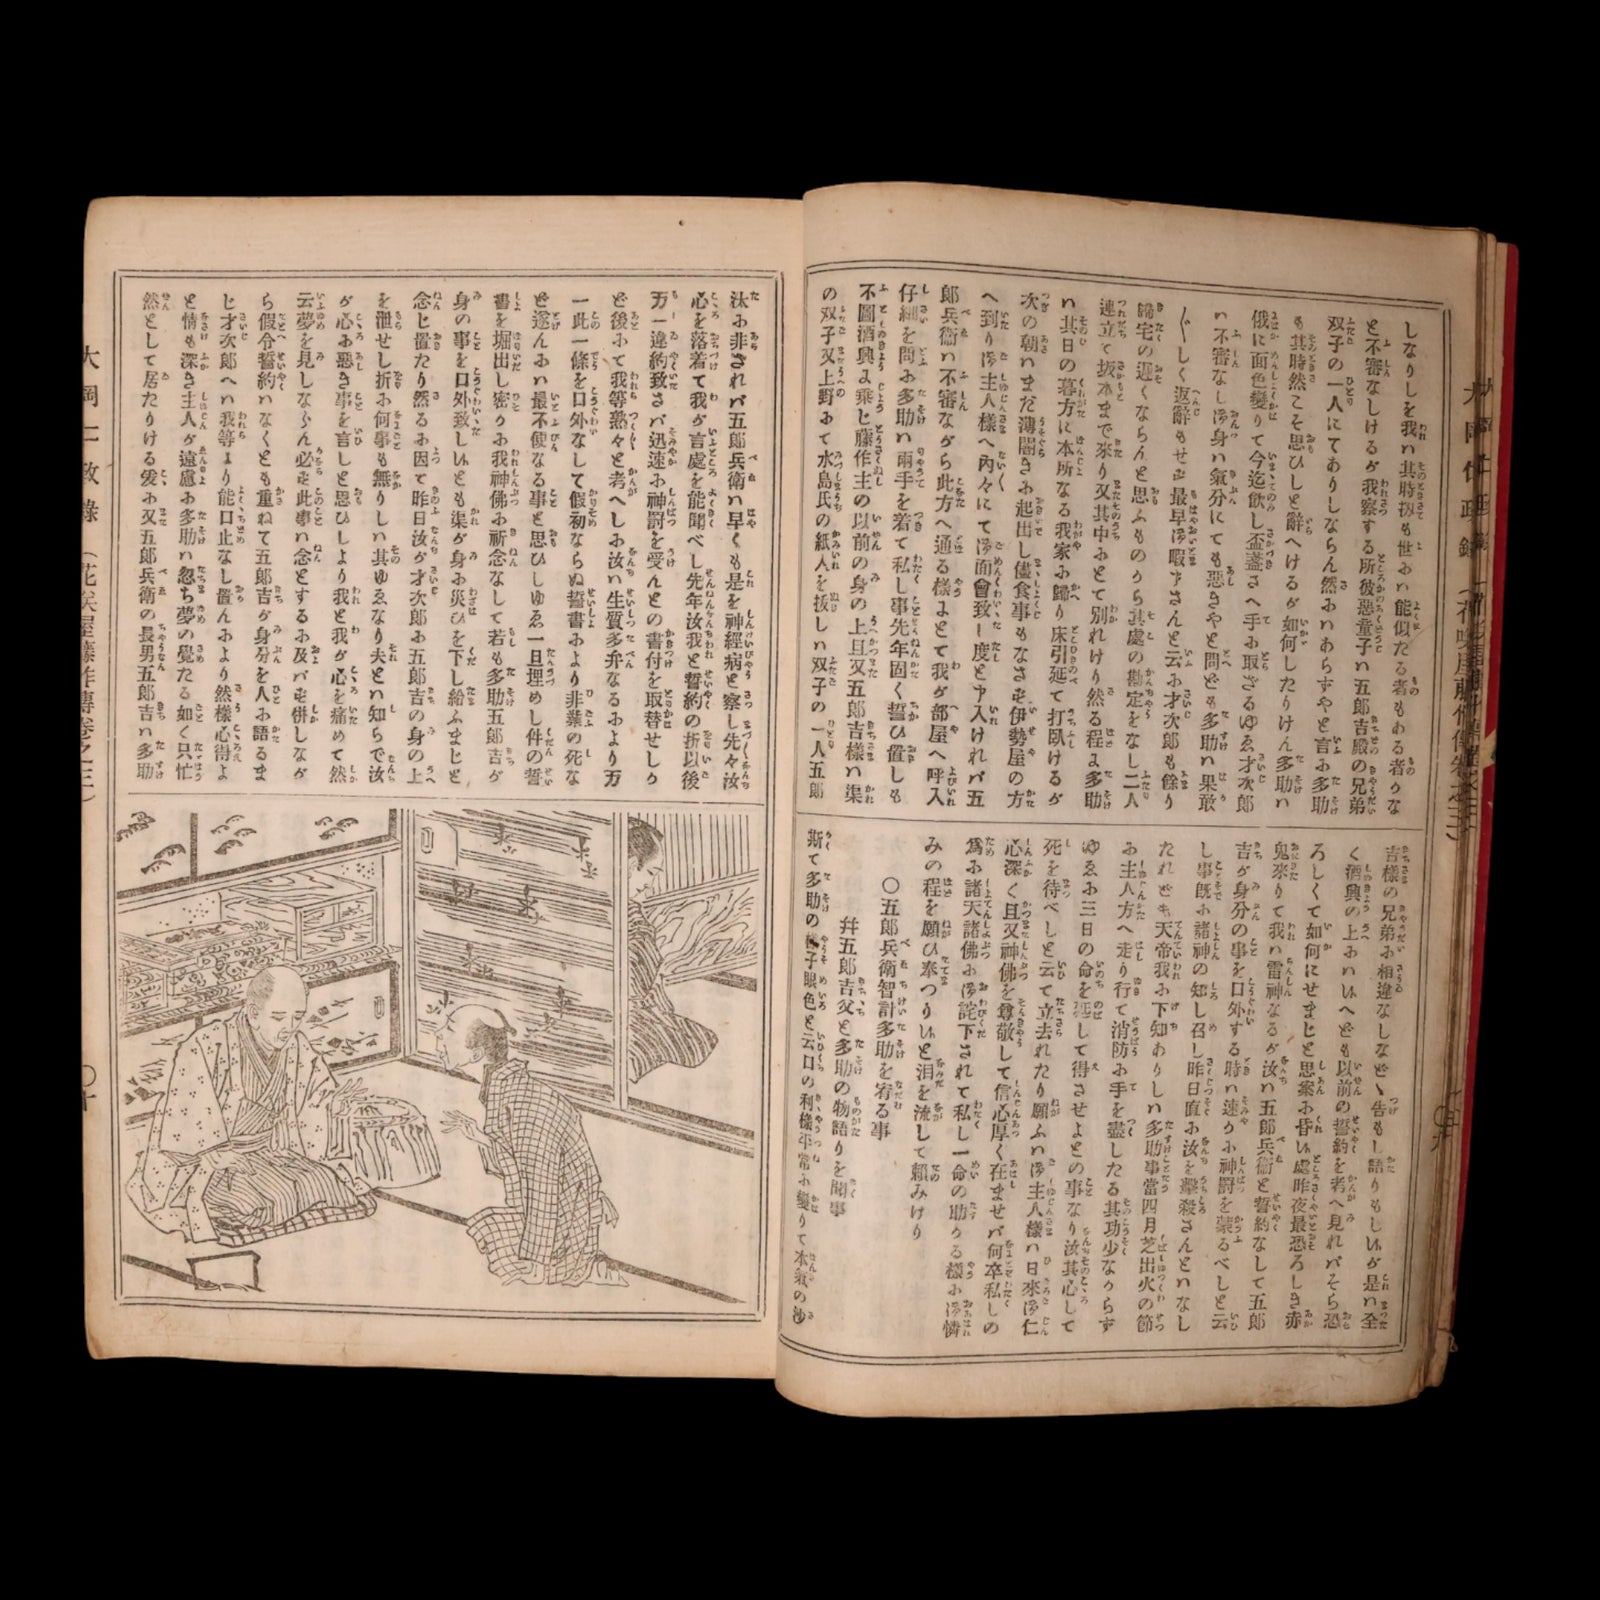 しなりしを我ハ其時扨も世にハ能似たる者もある者かな
と不審なしけるが我察する所彼惡童子ハ五郎吉殿の兄弟
双子の一人にてありしならん然にハあらずやと言に多助
も其時然こそ思ひしと辭へけるが如何したりけん多助ハ
俄に面色變りて今迄飲し盃盞さへ手に取ざるゆゑ才次郎
ハ不審なし御身ハ氣分にても惡きやと問ども多助ハ果敢
〴〵しく返辭もせず最早御暇申さんと云に才次郎も餘り
歸宅の遲くならんと思ふものから其處の勘定をなし二人
連立て坂本まで來り又其中にとて別れけり然る程に多助
ハ其日の暮方に本所なる我家に歸り床引延て打臥けるが
次の朝いまだ薄闇きに起出し儘食事もなさず伊勢屋の方
へ到り御主人樣へ内々にて御面會致し度と申入けれバ五
郎兵衞ハ不審ながら此方へ通る樣にとて我が部屋へ呼入
仔細を問に多助ハ兩手を着て私し事先年固く誓ひ置しも
不圖酒興に乘じ藤作主の以前の身の上且又五郎吉樣ハ渠
の双子又上野にて水島氏の紙入を拔しハ双子の一人五郎
吉樣の兄弟に相違なしなど丶告もし語りもしゝが是ハ全
く酒興の上にハいへども以前の誓約を考へ見れバそら恐
ろしくて如何にせまじと思案に昏い處昨夜最恐ろしき赤
鬼來りて我ハ雷神なるが汝ハ五郎兵衞と誓約なして五郎
吉が身分の事を口外する時ハ速かに神罰を蒙るべしと云
し事既に諸神の知し召し昨日直に汝を擊殺さんとハなし
たれども天帝我に下知ありしハ多助事當四月芝出火の節
に主人方へ走り行て消防に手を盡したる其功少なからず
ゆゑに三日の命を延して得させよとの事なり汝其心して
死を待べしと云て立去れたり願ふハ御主人樣ハ日來御仁
心深く且又神佛を尊敬して信心厚く在ませバ何卒私しの
爲に諸天諸佛に御詫下されて私し一命の助かる樣に御憐
みの程を願ひ奉つりいと泪を流して賴みけり
○五郎兵衞智計多助を宥る事
幷五郎吉父と多助の物語りを聞事
斯て多助の樣子眼色と云口の利樣平常に變りて本氣の沙
汰に非されバ五郎兵衞ハ早くも是を神經病と察し先々汝
心を落着て我が言處を能聞べし先年汝我と誓約の折以後
万一違約致さバ迅速に神罰を受んとの書付を取替せしか
ど後にて我等熟々と考へしに汝ハ生質多弁なるにより万
一此一條を口外なして假初ならぬ誓書により非業の死な
ど遂んにハ最不便なる事と思ひしゆゑ一旦埋めし件の誓
書を堀出し密かに我神佛に祈念なして若も多助五郎吉が
身の事を口外致しいとも渠が身に災ひを下し給ふまじと
念じ置たり然るに因て昨日汝が才次郎に五郎吉の身の上
を泄せし折に何事も無りしハ其ゆゑなり夫とハ知らで汝
が心に惡き事を言しと思ひしより我と我が心を痛めて然
云夢を見しならん必ず此事ハ念とするに及バず併しなが
ら假令誓約ハなくとも重ねて五郎吉が身分を人に語るま
じ才次郎へハ我等より能口止なし置んにより然樣心得よ
と情も深き主人が遠慮に多助ハ忽ち夢の覺たる如く只忙
然として居たりける爰に又五郎兵衞の長男五郎吉ハ多助
大岡仁政錄 (花咲屋藤作傳卷之三)
〇十